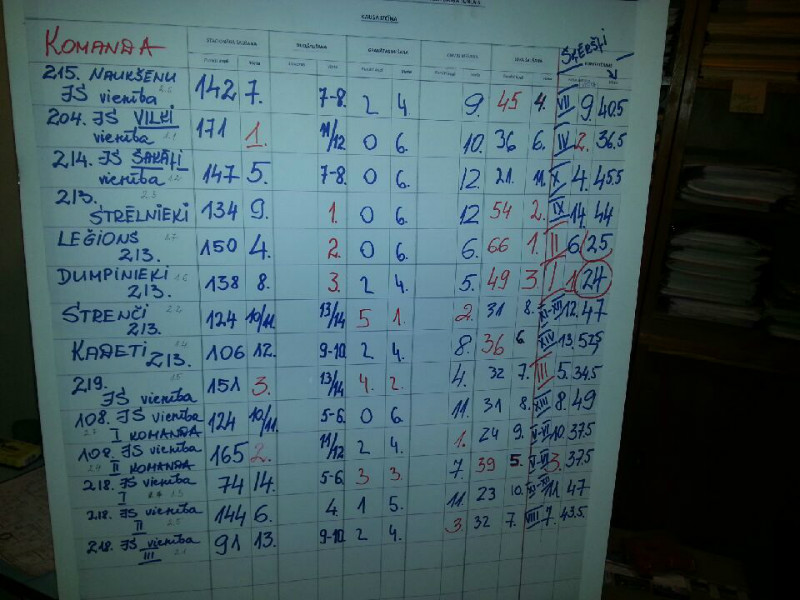 KOMANDA ŠĶĒRŠĻI
215. NAUKŠENU JŠ vienība 142 7. 7-8. 2 4 9. 45 4. VII 9. 40.5
204. JŠ VILKI vienība 171 1. 11/12 0 6. 10. 36 6. IV 2. 36.5
214. JŠ ŠAKĀĻI vienība 147 5. 7-8 0 6. 12. 21. 11. X 4. 45.5
213. STRĒLNIEKI 134 9. 1. 0 6. 12 54 2. IX 14. 44
LEĢIONS 213. 150 4. 2. 0 6. 6. 66 1. II 6. 25
DUMPINIEKI 213. 138 8. 3. 2 4. 5. 49 3. I 1 24
STRENČI 213. 124 10/11. 13/14 5 1. 2. 31 8. XI-XII 12. 47
KADETI 213. 106 12. 9-10. 2 4. 8. 36 6. XIV 13. 52.5
219. JŠ vienība 151 3. 13/14 4. 2. 4. 32 7. III 5. 34.5
108. JŠ vienība I KOMANDA 124 10/11. 5-6. 0 6. 11. 31 8. XIII 8. 49
108. JŠ vienība II KOMANDA 165 2. 11/12 2 4. 1. 24 9. V-VI 10. 37.5
218. JŠ vienība I 74 14. 5-6 3 3. 7. 39 5. V-VI 3. 37.5
218. JŠ vienība II 144 6. 4. 1 5. 11. 23 10. XI-XII 11. 47
218. JŠ vienība III 91 13. 9-10 2 4. 3. 32 7. VIII 7. 43.5